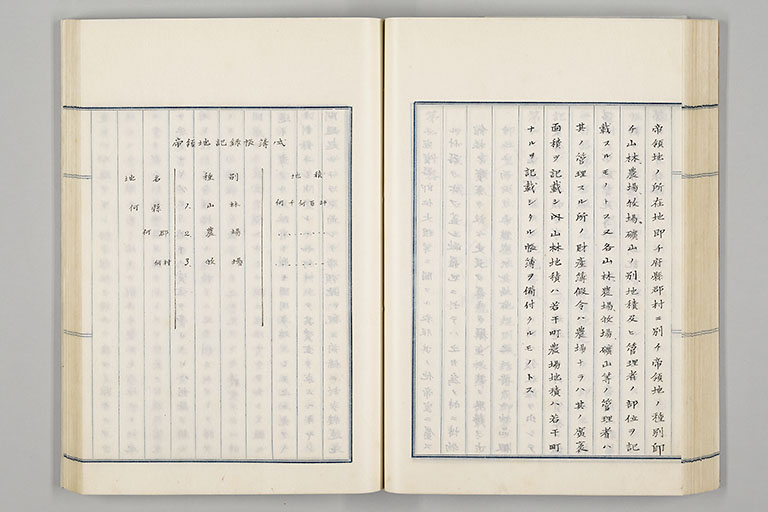 帝領地ノ所在地即チ府縣郡村ニ別チ帝領地ノ種別即
チ山林農場、牧場、礦山ノ別、地積及ヒ管理者ノ部位ヲ記
載スルモノトス又各山林農場牧場礦山等ノ管理者ハ
其ノ管理スル所ノ財産簿假令ハ農場ナラハ其ノ廣袤
面積ヲ記載シ內山林地積ハ若干町農場地積ハ若干町
ナルヲ記載シタル帳簿ヲ備付クルモノトス
帝領地記録帳簿式
地名
何縣
何郡
何村
種別
1. 山林
2. 農場
3. 牧場
地積
何千何百坪